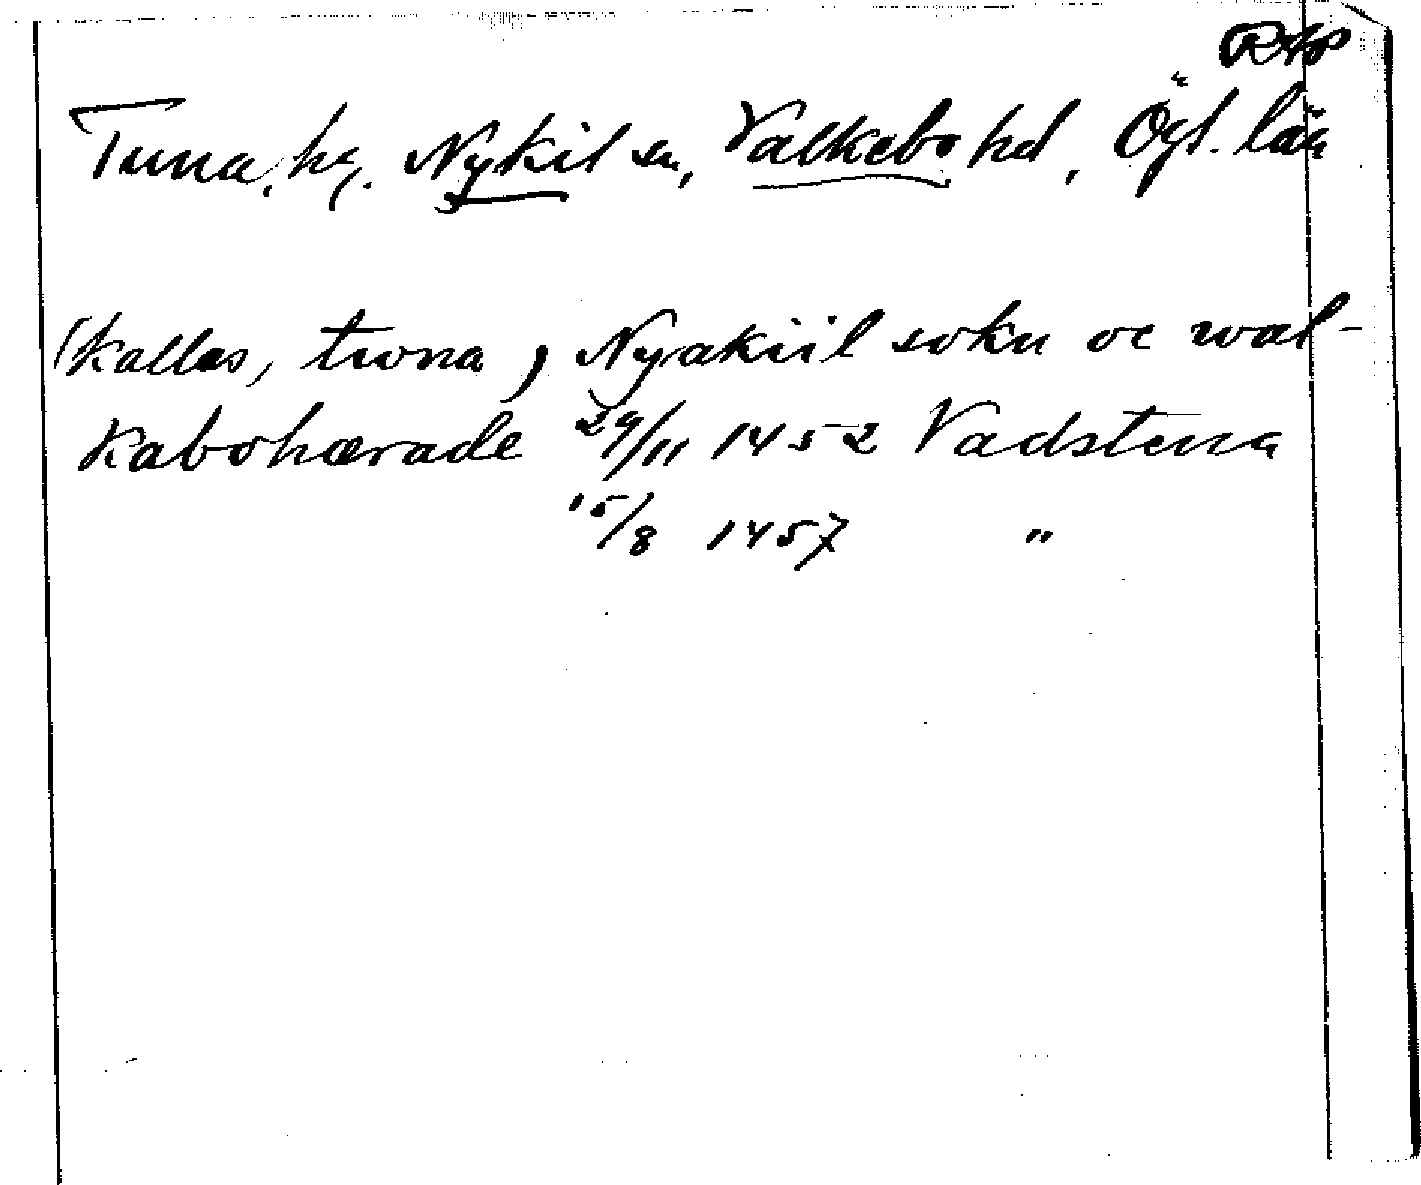 RAp
Tuna, hg. Nykil sn, Valkebo hd, Ögl. län
(kallas, twna) Nyakiil sokn oc wal-
kabohærade 29/11 1452 Vadstena
15/8 1457 "